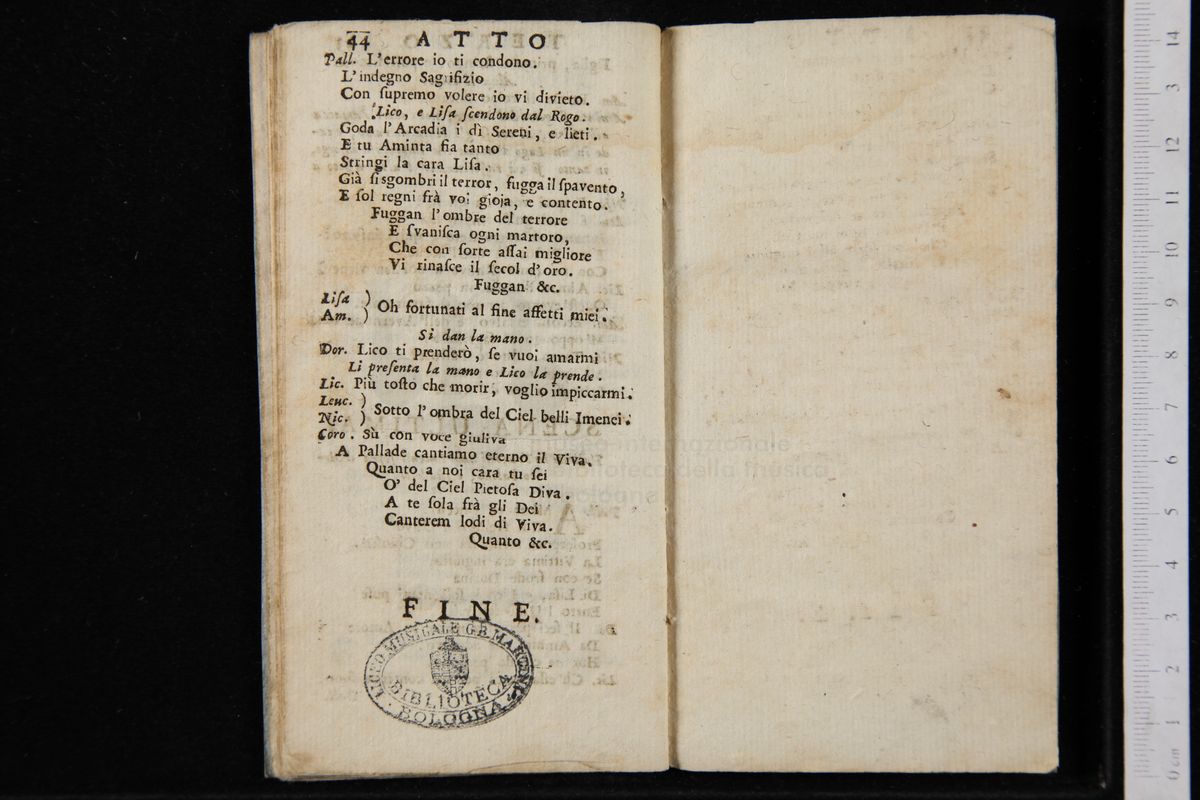 44 ATTO
Pall. L'errore io ti condono.
L'indegno Sagrifizio
Con ſupremo volere io vi divieto.
Lico, e Liſa ſcendono dal Rogo.
Goda l'Arcadia i dì Sereni, e lieti.
E tu Aminta fia tanto
Stringi la cara Liſa.
Già ſi sgombri il terror, fugga il ſpavento,
E ſol regni frà voi gioja, e contento.
Fuggan l'ombre del terrore
E ſvaniſca ogni martoro,
Che con ſorte aſſai migliore
Vi rinaſce il ſecol d'oro.
Fuggan &c.
Liſa )
Am. ) Oh fortunati al fine affetti miei.
Si dan la mano.
Dor. Lico ti prenderò, ſe vuoi amarmi
Li preſenta la mano e Lico la prende.
Lic. Più toſto che morir, voglio impiccarmi.
Leuc. )
Nic. ) Sotto l'ombra del Ciel belli Imenei.
Coro. Sù con voce giuliva
A Pallade cantiamo eterno il Viva.
Quanto a noi cara tu ſei
O' del Ciel Pietoſa Diva.
A te ſola frà gli Dei
Canterem lodi di Viva.
Quanto &c.
FINE.
LICEO MUSICALE G.B. MARTINI
BIBLIOTECA
BOLOGNA
museo internazionale
e biblioteca della musica
bologna
0 cm 1 2 3 4 5 6 7 8 9 10 11 12 3 14